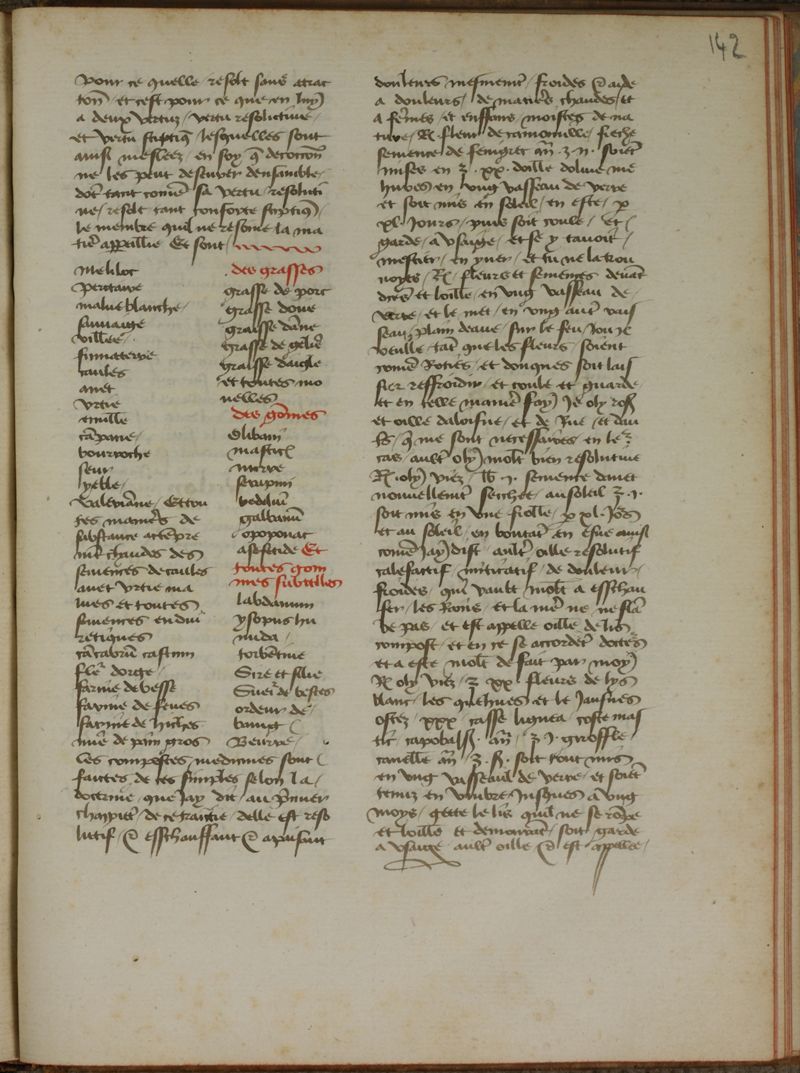 142
Pour ce quelle resolt sans atrac
ton et cest pour ce que en luy
a deux vertuz vertu resolutiue
et vertu stiptiq lesquelles sont
ainsi meslees en soy q decoccon
ne les peut desseurer densamble
dot tant come sa vertu resoluti
ue resolt tant conforte stiptiq
le membre quil ne resoiue la ma
tie appaillie Et sont
Melilot
Peritarie
malue blanche
sauuaige
villee
fumaterre
caules
anet
Vrtie
emille
capane
bourroche
seur
yeble
Valeriane Et tou
tes manieres de
substance attepre
mt chaudes des
semences de caules
anet vrtie ma
lues et toutes
semences en diui
retiques
cacabru castum
fle dorge
farine de vesse
farine de feues
farine de lniches
mie de pain gros
des grasses
grasse de porc
grasse doue
graisse dane
Grasse de geline
graisse daigle
et toutes mo
uelles
des gomes
Olibani
masticz
mirre
serapini
bedeliu
galbanu
opoponac
asefetide Et
toutes gom
mes subtilles
labdanum
ysopus hu
mida
torbetine
Sire et filie
Suei de bestes
ordeur de
baing
Beurre
Les compostes medicines sont
faictes de ces simples selon la
doctrine que jay dit au premier
chappitre de ce traictie delle est reso
lutif et esschauffant et apaisant
douleurs mesmemt froides et aide
a douleurs de matieres chaudes et
a femes et enffans moistes de na
ture Rx fleur de camomille seche
semence de fenigrec an z ii soiet
mises en z xx doille doliue me
lures en vng vasseau de verre
et soit mis en soleil en este p
xl jours puis soit coule et
garde a vsaige et se y tauoit
mestier en yuer et tu ne la trou
uoyes Rx fleurs et semences deuat
dites et loille en vng vasseau de
verre et le met en vng autre vais
seau plain deaue sur le feu jou ie
veulle tat que les fleurs soient
come roties et donques soit lais
sier reffroidir et coule et guarde
et en telle maniere fay je oly ros
et oille daloisne et de Rue et dau
tes q me sont necessaires en le
cas aultre oly molt bien resolutiue
Rx oly viez lb i semence danet
nouuellemt seichee au soleil z i
soit mis en vne fiolle p xl jos
et au soleil en boutat en esue ainsi
come jay dist aultre oille resolutif
calefactif mitigatif de douleur
froides qui vault molt a esschau
fer les Rains et la mie ne nestu
ve pas et est appelle oille de lis
compost et en ce se accordet docteurs
et a este molt de fait par moy
Rx oly viez z xx fleurs de lys
blanc les quehues et le jausnes
ostez xxx casse lignea coste mas
tic capobals an z i giroffle
canelle an z s soit tout mis
en vng vasseaul de verre et soit
tenuz en vmbre jusques a vng
moys gette le lis quil ne se rope
et loille et demorrat soit garde
a vsaige aultre oille et est appelee